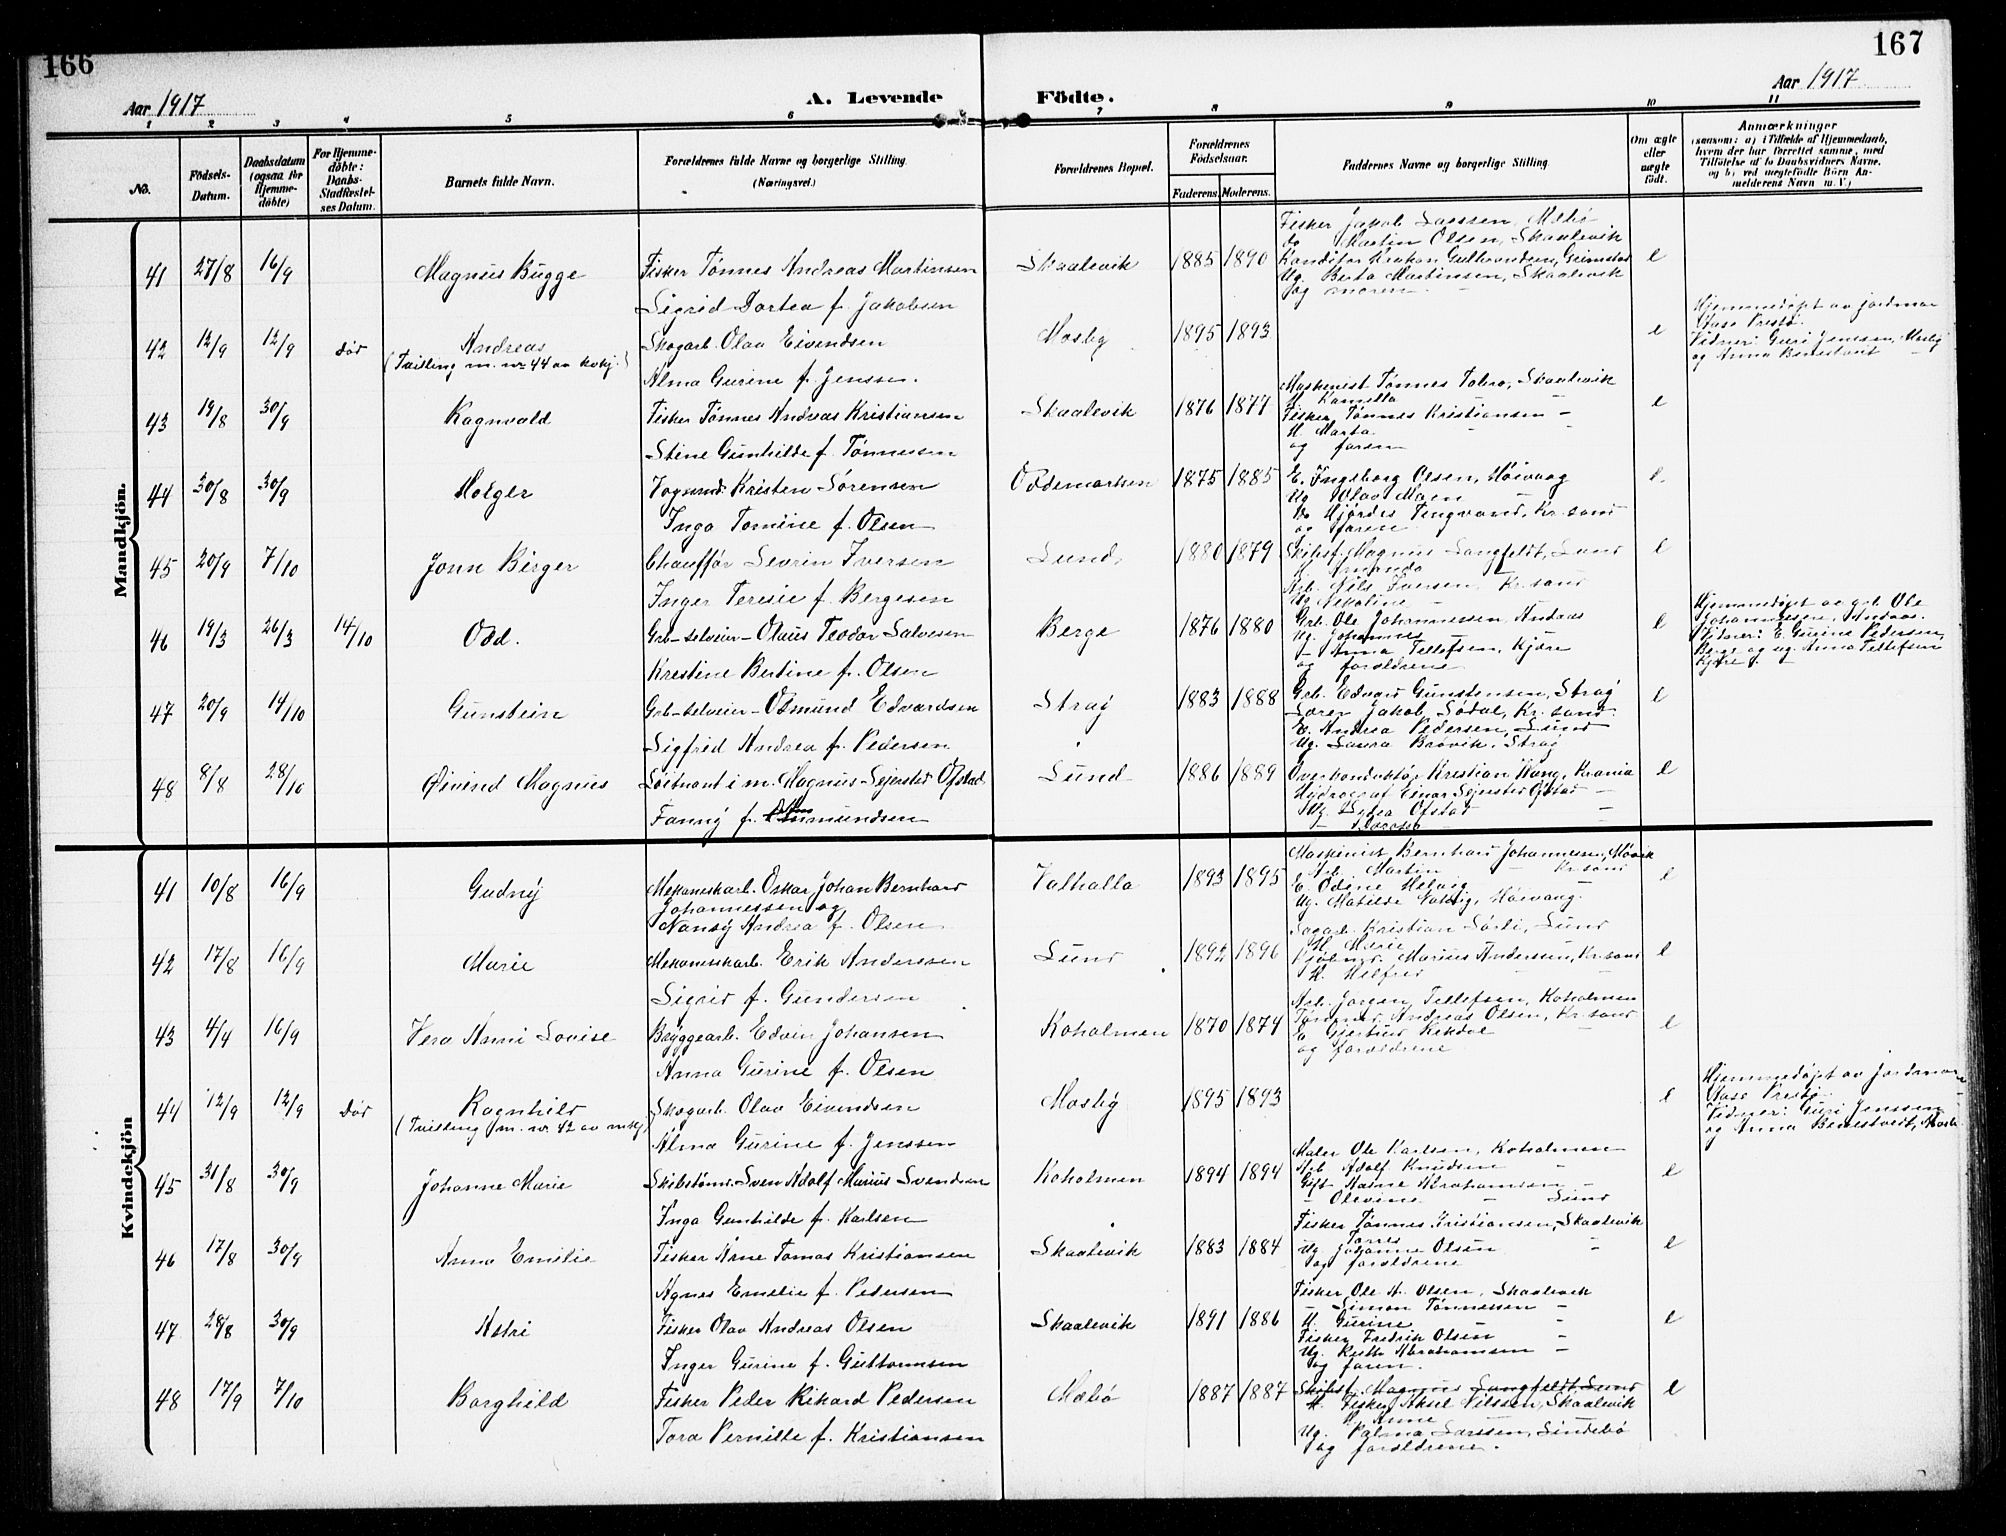 166
167
Aar 1917
A. Levende
Födte.
Aar 1917
1 2 3 4 5 6 7 8 9 10 11
No.
Födsels-
Datum.
Daabsdatum
(ogsaa for
Hjemme-
döbte)
For Hjemme-
döbte:
Daabs-
Stadfæstel-
ses Datum.
Barnets fulde Navn.
Forældrenes fulde Navne og borgerlige Stilling.
(Næringsvei.)
Forældrenes Bopæl.
Forældrenes
Födselsaar.
Faderens. Moderens.
Faddernes Navne og borgerlige Stilling.
Om ægte
eller
uægte
födt.
Anmærkninger
(saasom: a) i Tilfælde af Hjemmedaab,
hvem der har forrettet samme, med
Tilföielse af to Daabsvidners Navne.
og b) ved uægtefödte Börn An-
melderens Navn m. V.)
Mandkjön.
41 27/8 16/9 Magnus Bugge
Fisker Tønnes Andreas Martinsen
Sigrid Dortea f. Jakobsen
Skaalevik 1885 1890
Fisker Jakob Larssen, Mæbø
do Martin Olsen, Skaalevik
Ug. Berta Martinsen, Skaalevik
og moren
e
42 12/9 12/9 død Andreas
(Tvilling m. nr. 44 av kvkj.)
Skogarb. Olav Eivendsen
Alma Gurine f. Jenssen.
Mosby 1895 1893
e
Hjemmedøpt av jordmor
Vidner: Guri Jenssen, Mosby
og Anna
43 19/8 30/9 Ragnvald
Fisker Tønnes Andreas Kristiansen
Stine Gunhilde f. Tønnessen
Skaalevik 1876 1877
Maskinist Tønnes Tobro, Skaalevik
H. Kamilla -
Fisker Tønnes Kristiansen -
H. Marta -
og faren
e
44 30/8 30/9 Holger
Vognmd. Kristen Sørensen
Inga Tomine f. Olsen
Oddemarken 1875 1885
E. Ingeborg Olsen, Høivaag
Ug. Olav Moen
Do Hjørdis Tengvand, Kr.sand
og faren
e.
45 20/9 7/10 John Birger
Chauffør Severin Iversen
Inger Teresie f. Bergesen
Lund. 1880 1879
Skibsf. Magnus Langfeldt, Lund
H. Amanda
Arb. Nils Iversen, Kr.sand
Ug. Nikoline -
e
46 19/3 26/3 14/10 Odd.
Grb-selveier- Olaus Teodor Salvesen
Krestine Bertine f. Olsen
Berge 1876 1880
Grb. Ole Johannessen, Andaas
Ug. Johannes -
- Anna Tellefsen, Kjære
og forældrene
e
Hjemmedøpt av grb. Ole
Johannessen, Andaas.
Vidner: E. Gurine Pedersen,
Berge og ug. Anna Tellefsen
Kjære.
47 20/9 14/10 Gunstein
Grb-selveier- Osmund Edvardsen
Sigfrid Andrea f. Pedersen
Stray 1883 1888
Grb. Edvard Gunstensen, Stray
Søren Jakob Sødal, Kr.sand
E. Andrea Pedersen, Lund
Ug. Laura Brøvik, Stray
e
48 8/8 28/10 Øivind Magnus
Løitnant i m. Magnus Sejersted Ofstad
Fanny f. Amundsen
Lund 1886 1889
Overkonduktør Kristian Wang, Krania
Hydrograf Einar Sejersted Ofstad -
Ug. Lydia Ofstad -
e
Kvindekjön
41 10/8 16/9 Gudny
Mekaneskarb. Oskar Johan Bernhard
Johannessen og
Nansy Andrea f. Olsen
Valhalla 1893 1895
Maskinist Bernhard Johannessen, Høvik
Arb. Martin - Kr.sand
E. Odine Helvig -
Ug. Matilde Valvig, Høivaag.
e
42 17/8 16/9 Marie
Mekaneskarb. Erik Andersen
Sigrid f. Gundersen
Lund 1892 1896
Sagarb. Kristian Sørli, Lund
H. Marie -
Marius Andersen, Kr.sand
H. Helfrid -
e
43 4/4 16/9 Vera Anni Lovise
Bryggearb. Edvin Johansen
Anna Gurine f. Olsen
Koholmen 1870 1874
Arb. Jørgen Tellefsen, Koholmen
Tømmerm. Andreas Olsen, Kr.sand
E. Gjertrud Rekdal -
og forældrene
e
44 12/9 12/9 død Ragnhild
(Tvilling m. nr. 42 av mkj.)
Skogarb. Olav Eivendsen
Alma Gurine f. Jenssen
Mosby 1895 1893
e
Hjemmedøpt av jordmor
Vidner: Guri Jenssen
og Anna
45 31/8 30/9 Johanne Marie
Skibstømr. Sven Adolf Marius Svendsen
Inga Gunhilde f. Karlsen
Koholmen 1894 1894
Maler Ole Karlsen, Koholmen
Arb. Adolf Knudsen -
Gift Maine Abrahamsen -
- Olevine - Lund
e
46 17/8 30/9 Anna Emelie
Fisker Arne Tomas Kristiansen
Agnes Emelie f. Pedersen
Skaalevik 1883 1884
Fisker Tønnes Kristiansen, Skaalevik
Ug. Johanne Olsen -
og forældrene
e
47 28/8 30/9 Astri
Fisker Olav Andreas Olsen
Inger Gurine f. Guttormsen
Skaalevik 1891 1886
Fisker Ole A. Olsen, Skaalevik
- Simon Tønnessen -
H. Gurine -
Fisker Fredrik Olsen -
Ug. Ruth Abrahamsen -
og faren.
e
48 17/9 7/10 Borghild
Fisker Peder Rikard Pedersen
Tora Pernille f. Kristiansen
Mæbø 1887 1887
Skibsf. Magnus Langfeldt, Lund
Fisker Aksel Nilssen, Skaalevik
H. Anne
Ug. Palma Larssen, Lindebø
og forældrene.
e